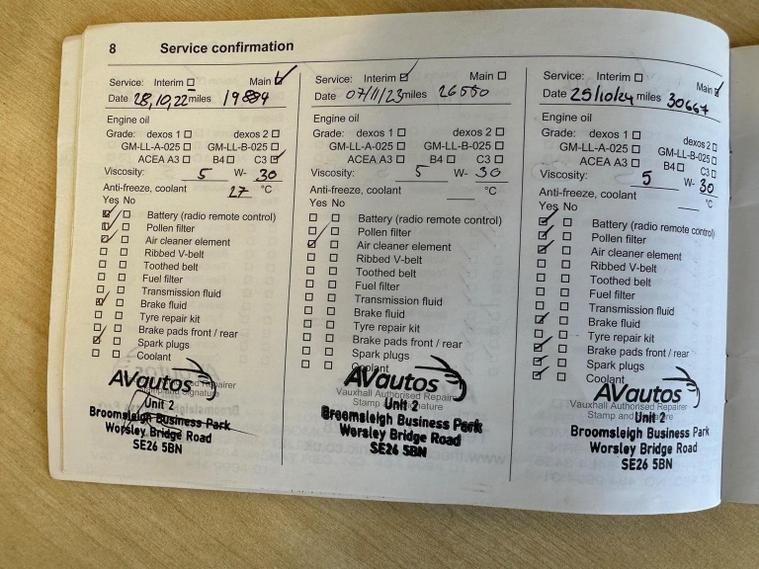 8 Service confirmation
Service: Interim Main
Date 28,10,22 miles 19884
Engine oil
Grade: dexos 1 dexos 2
GM-LL-A-025 GM-LL-B-025
ACEA A3 B4 C3
Viscosity: 5 W- 30
Anti-freeze, coolant 27 °C
Yes No
Battery (radio remote control)
Pollen filter
Air cleaner element
Ribbed V-belt
Toothed belt
Fuel filter
Transmission fluid
Brake fluid
Tyre repair kit
Brake pads front / rear
Spark plugs
Coolant
AVautos
Unit 2
Broomsleigh Business Park
Worsley Bridge Road
SE26 5BN
Service: Interim Main
Date 07/11/23 miles 26550
Engine oil
Grade: dexos 1 dexos 2
GM-LL-A-025 GM-LL-B-025
ACEA A3 B4 C3
Viscosity: 5 W- 30
Anti-freeze, coolant °C
Yes No
Battery (radio remote control)
Pollen filter
Air cleaner element
Ribbed V-belt
Toothed belt
Fuel filter
Transmission fluid
Brake fluid
Tyre repair kit
Brake pads front / rear
Spark plugs
Coolant
AVautos
Vauxhall Authorised Repairer
Stamp and signature
Unit 2
Broomsleigh Business Park
Worsley Bridge Road
SE26 5BN
Service: Interim Main
Date 25/10/24 miles 30667
Engine oil
Grade: dexos 1 dexos 2
GM-LL-A-025 GM-LL-B-025
ACEA A3 B4 C3
Viscosity: 5 W- 30
Anti-freeze, coolant °C
Yes No
Battery (radio remote control)
Pollen filter
Air cleaner element
Ribbed V-belt
Toothed belt
Fuel filter
Transmission fluid
Brake fluid
Tyre repair kit
Brake pads front / rear
Spark plugs
Coolant
AVautos
Vauxhall Authorised Repairer
Unit 2
Broomsleigh Business Park
Worsley Bridge Road
SE26 5BN